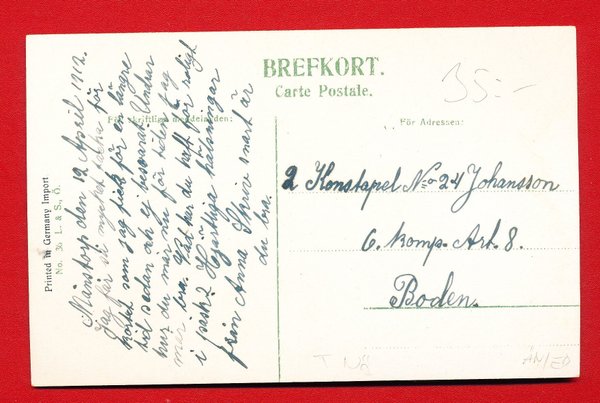 BREFKORT.
Carte Postale.
35:-
För skriftliga meddelanden:
För Adressen:
Månstorp den 12 April 1912.
Jag får så mycket tacka för
kortet som jag fick för en längre
tid sedan och ej besvarat. Undrar
hur du mår nu för tiden jag
mår bra. Vad har du haft för roligt
i påsk? Hjärtliga hälsningar
från Anna Skriv snart är
du bra.
2 Konstapel No 24 Johansson
6. Komp. Art. 8.
Boden.
Printed in Germany Import
No. 36 L. & S., Ö.
AN/EO